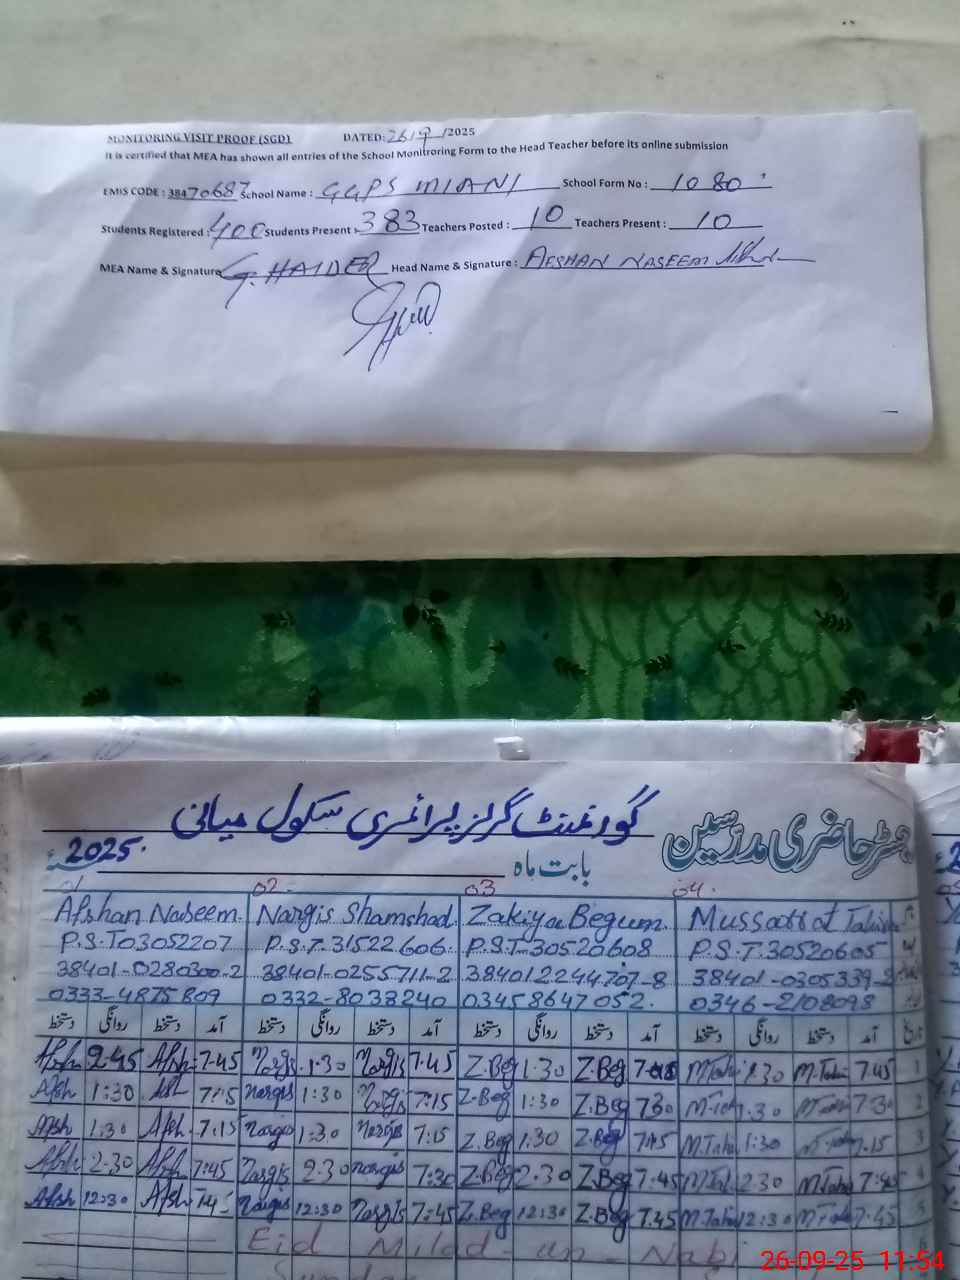 MONITORING VISIT PROOF (SGD) DATED: 26/9/2025
It is certified that MEA has shown all entries of the School Monitroring Form to the Head Teacher before its online submission
EMIS CODE : 38470687 School Name : GGPS MIANI School Form No : 1080
Students Registered : 400 Students Present : 383 Teachers Posted : 10 Teachers Present : 10
MEA Name & Signature G. HAIDER Head Name & Signature : AFSHAN NASEEM
گورنمنٹ گرلز پرائمری سکول میانی
رجسٹر حاضری مدرسین
بابت ماہ 2025ء
01 02 03 04
Afshan Naseem. Nargis Shamshad. Zakiya Begum. Mussarrat
P.S.T03052207 P.S.T.31522606. P.S.T-30520608 P.S.T.30520605
38401-0280300-2 38401-0255711-2 384012244707-8 38401-0305339-2
0333-4875809 0332-8033240 03458647052. 0346-2108098
دستخط روانگی دستخط آمد دستخط روانگی دستخط آمد دستخط روانگی دستخط آمد دستخط روانگی دستخط آمد
Afsh 2-45 Afsh 7-45 Nargis 1:30 Nargis 7:45 Z.Beg 1:30 Z.Beg 7:45 M.Tahi 1:30 M.Tahi 7:45 1
Afsh 1:30 Afsh 7:15 Nargis 1:30 Nargis 7:15 Z.Beg 1:30 Z.Beg 730 1.30 7-30 2
Afsh 1:30 Afsh. 7:15 Nargis 1:30 Nargis 7:15 Z.Beg 1:30 Z.Beg 7:15 M.Tahi 1:30 7.15 3
Afsh 2-30 Afsh 7:45 Nargis 2.30 Nargis 7:30 Z.Beg 2.30 Z.Beg 7.45 M.Tahi 230 M.Tahi 7:45 4
Afsh 12:30 Afsh Nargis 12:30 Nargis 7:45 Z.Beg 12:30 Z.Beg 7.45 M.Tahi 12:30 M.Tahi 7-45 5
Eid Milad-un-Nabi
Sunday
26-09-25 11:54